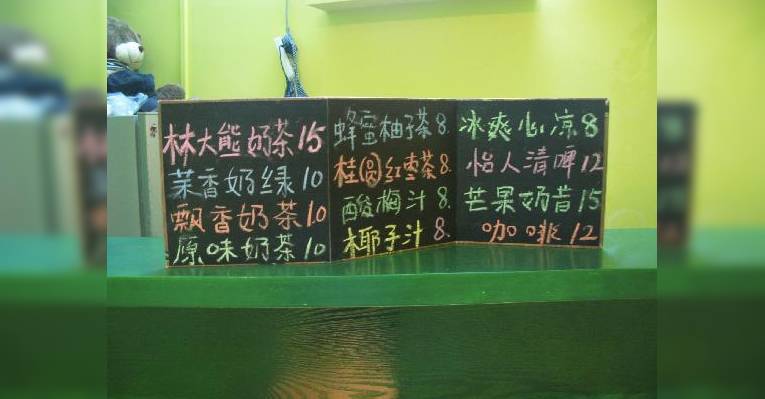 林大熊奶茶15
茉香奶绿10
飘香奶茶10
原味奶茶10
蜂蜜柚子茶8.
桂圆红枣茶8.
酸梅汁8.
椰子汁8.
冰爽心凉8
怡人清啤12
芒果奶昔15
咖啡12